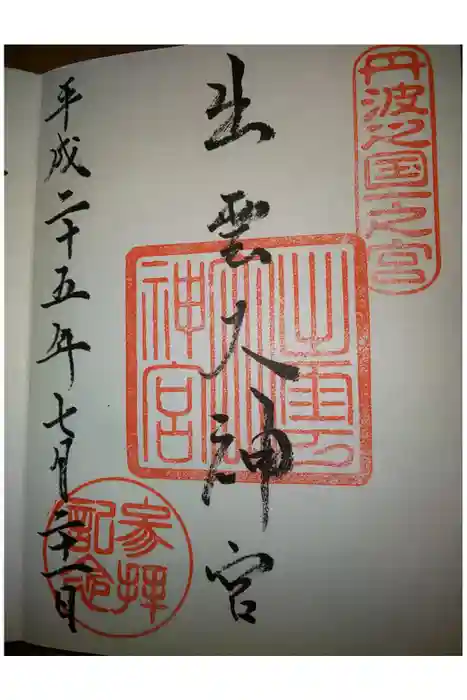 丹波之国一之宮
出雲大神宮
出雲大神宮
平成二十五年七月二十一日
参拝記念